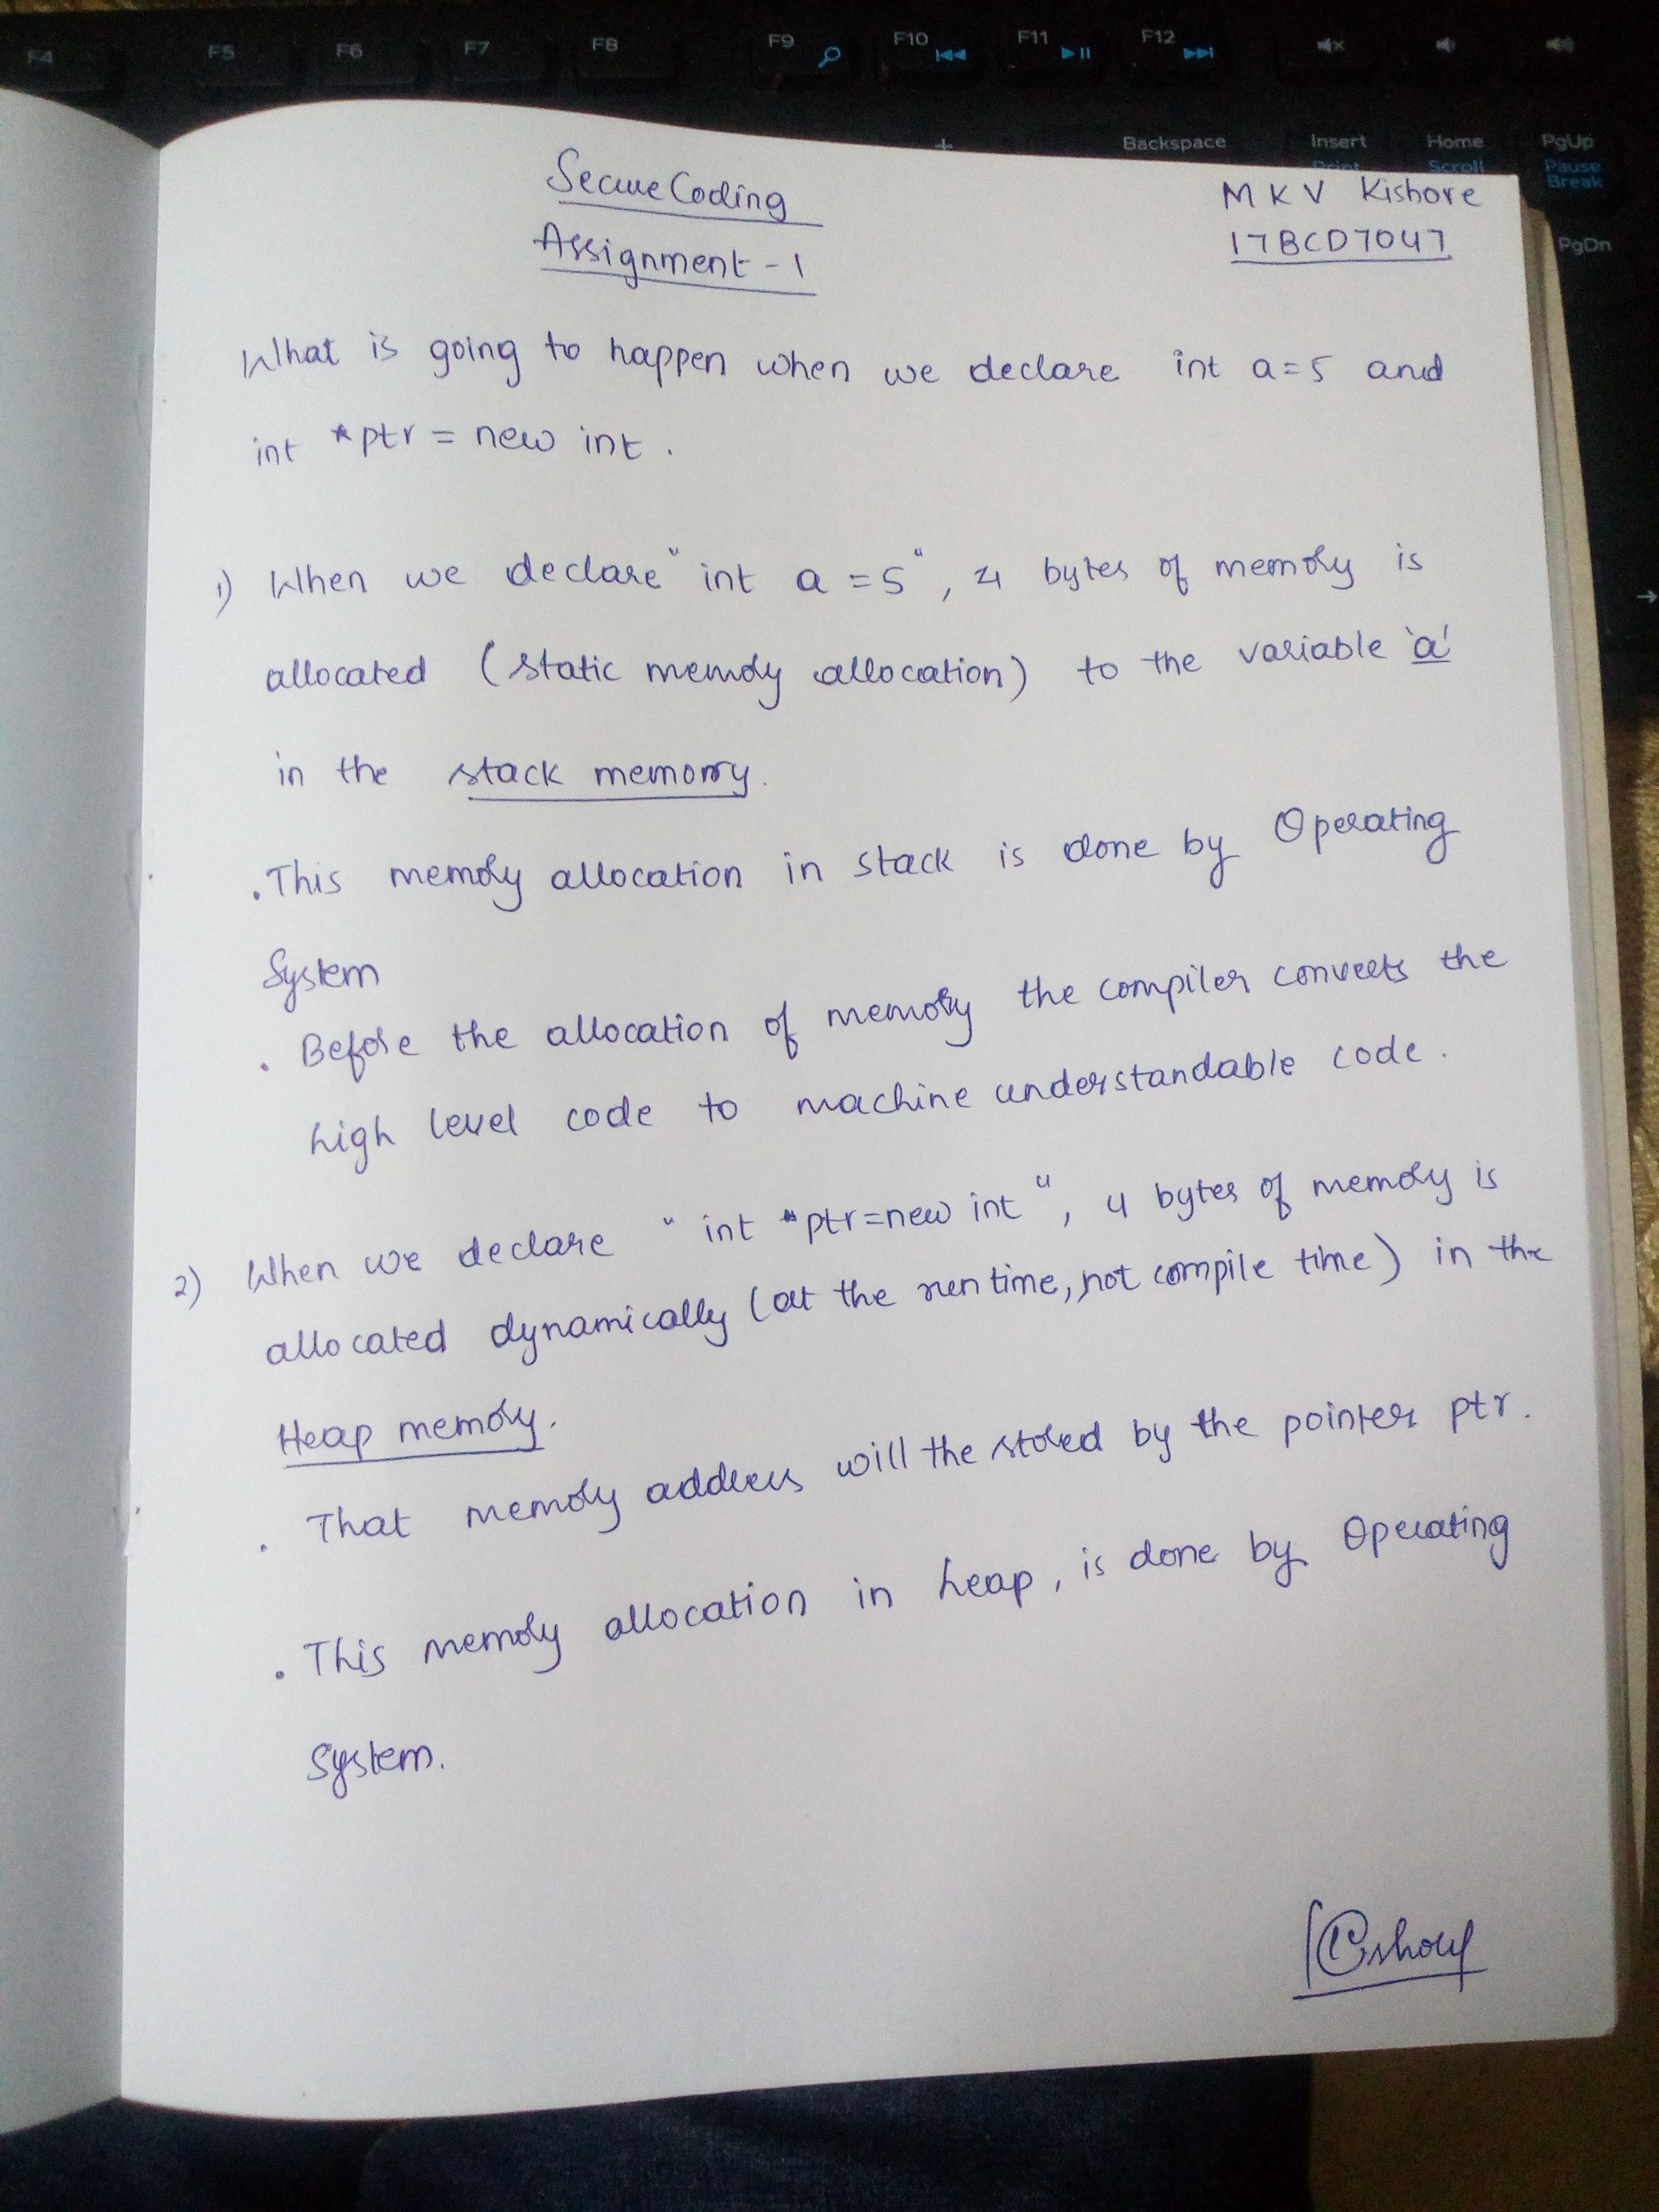 F4 F5 F6 F7 F8 F9 F10 F11 F12
Backspace Insert Home PgUp
Scroll Pause
Break
PgDn
Secure Coding
Assignment - 1
MKV Kishore
17BCD7047
What is going to happen when we declare int a=5 and
int *ptr = new int.
1) When we declare "int a = 5", 4 bytes of memory is
allocated (static memory allocation) to the variable 'a'
in the stack memory.
. This memory allocation in stack is done by Operating
System
. Before the allocation of memory the compiler converts the
high level code to machine understandable code.
2) When we declare "int *ptr=new int", 4 bytes of memory is
allocated dynamically (at the run time, not compile time) in the
Heap memory.
. That memory address will the stored by the pointer ptr.
. This memory allocation in heap, is done by Operating
System.
Kishore